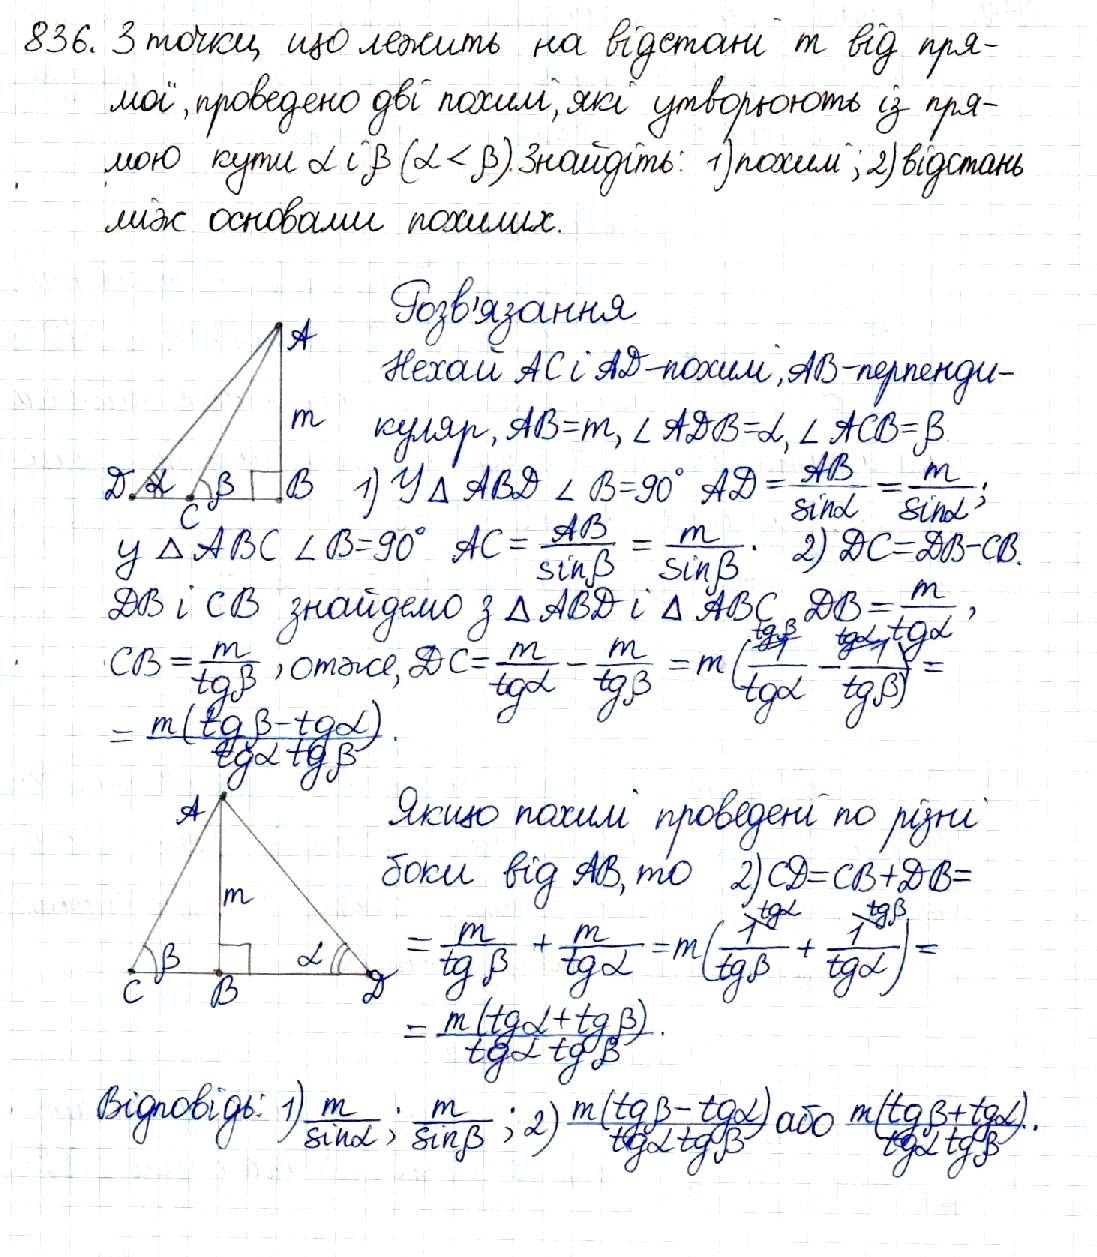 836. З точки, що лежить на відстані m від пря-
мої, проведено дві похилі, які утворюють із пря-
мою кути α і β (α < β). Знайдіть: 1) похилі; 2) відстань
між основами похилих.
Розв'язання
A
Нехай AC і AD - похилі, AB - перпенди-
m
куляр, AB = m, ∠ADB = α, ∠ACB = β
D α C β B
1) У △ ABD ∠B = 90° AD = AB/sinα = m/sinα;
у △ ABC ∠B = 90° AC = AB/sinβ = m/sinβ. 2) DC = DB - CB.
DB і CB знайдемо з △ ABD і △ ABC DB = m/tgα,
CB = m/tgβ, отже, DC = m/tgα - m/tgβ = m(1/tgα - 1/tgβ) =
= m(tgβ - tgα)/tgα tgβ.
A
Якщо похилі проведені по різні
боки від AB, то 2) CD = CB + DB =
m
= m/tgβ + m/tgα = m(1/tgβ + 1/tgα) =
C β B α D
= m(tgα + tgβ)/tgα tgβ.
Відповідь: 1) m/sinα; m/sinβ; 2) m(tgβ - tgα)/tgα tgβ або m(tgβ + tgα)/tgα tgβ.